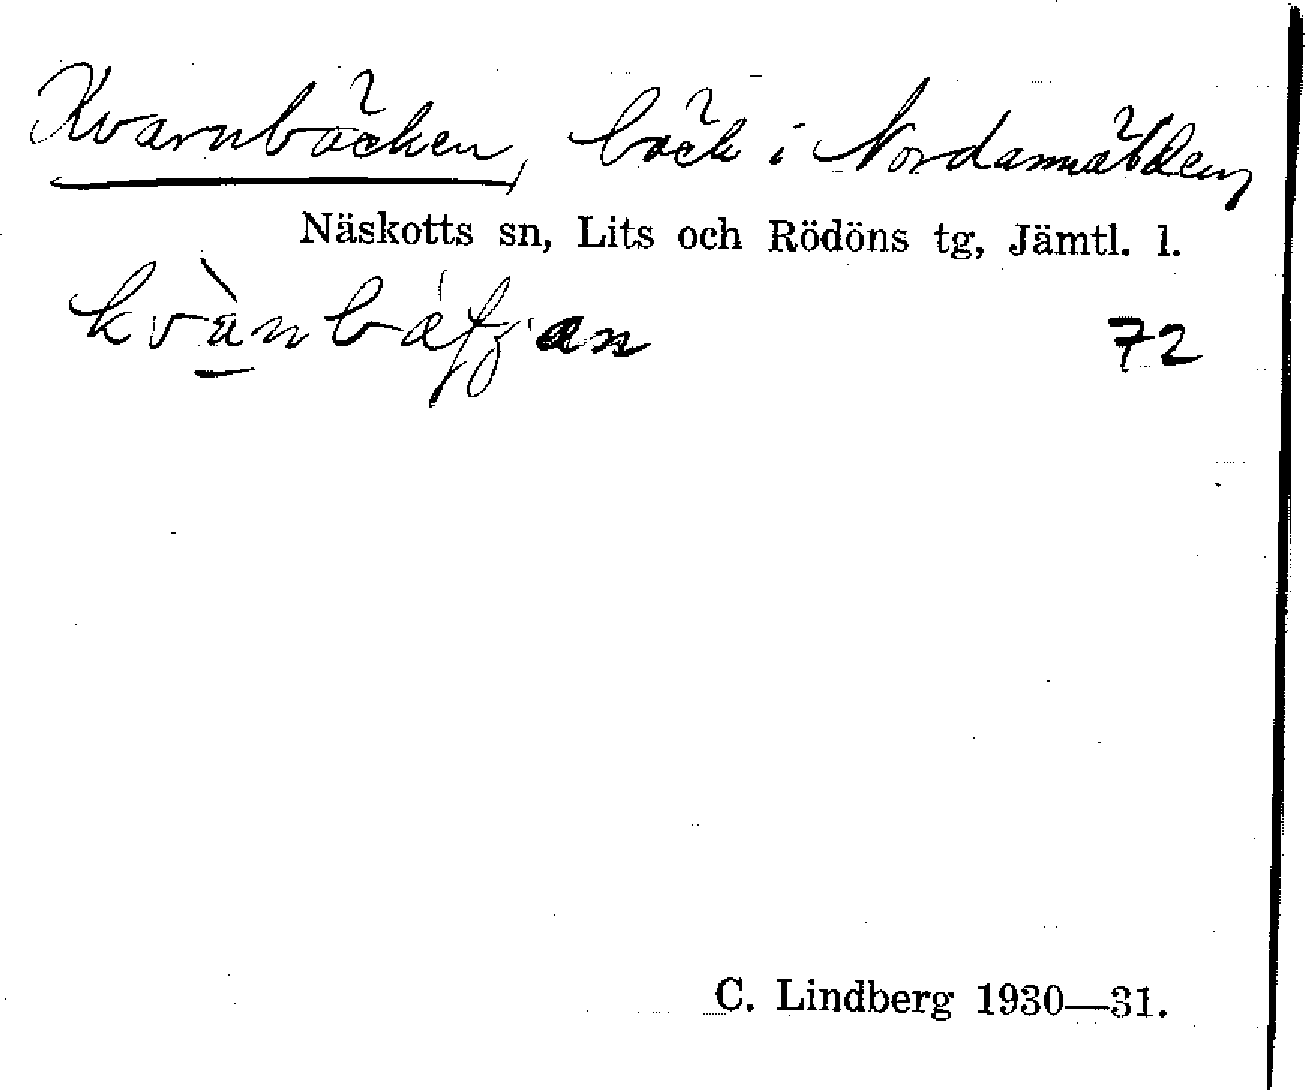 Kvarnbäcken, bäck i Nordannälden,
Näskotts sn, Lits och Rödöns tg, Jämtl. l.
72
C. Lindberg 1930—31.